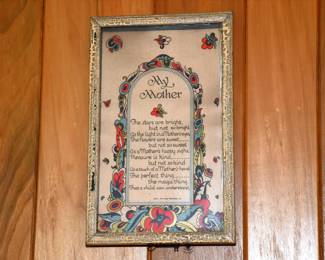 My
Mother
The stars are bright,
but not so bright
As the light in a Mother's eyes,
The flowers are sweet,
but not so sweet
As a Mother's happy sighs.
Treasure is kind,
but not so kind
As a touch of a Mother's hand
The perfect thing
the magic thing
That a child can understand.